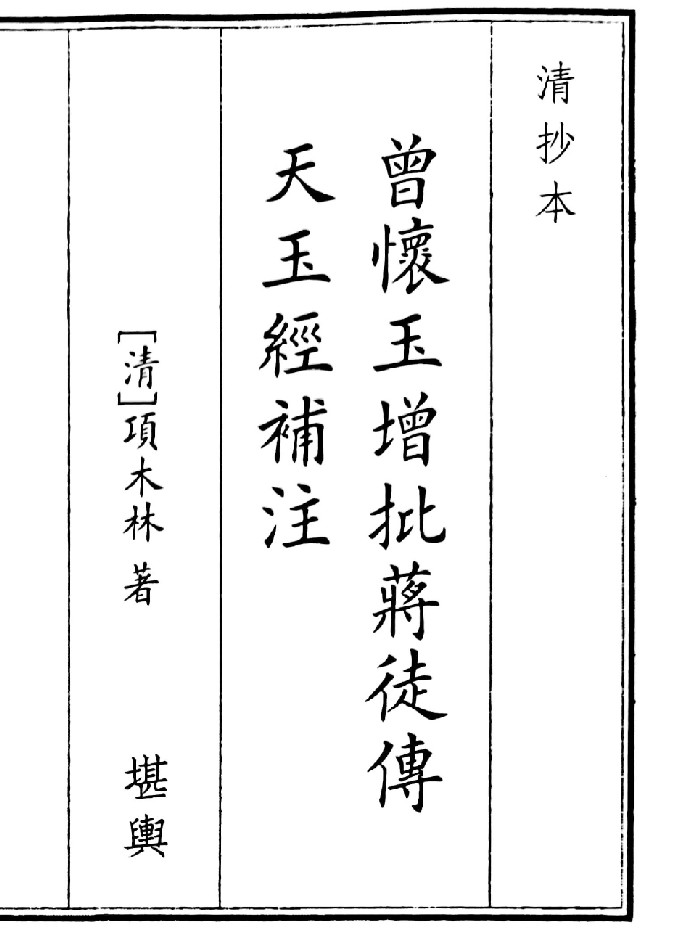 清抄本
曾懷玉增批蔣徒傳
天玉經補注
[清]項木林 著
堪輿